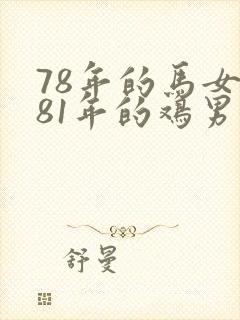 78年的馬女
81年的鸡男
舒曼